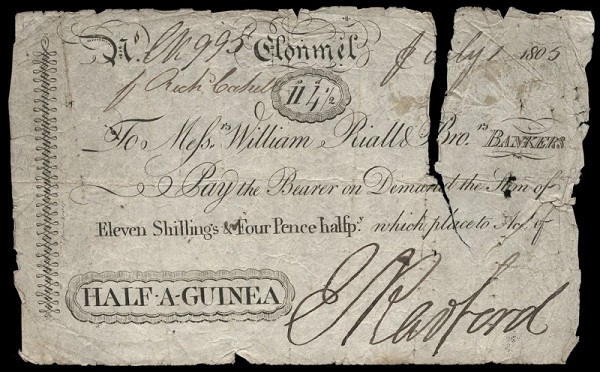 No. 995 Clonmel July 1 1805
11 4½
To Messrs William Riall & Bro.rs BANKERS
Pay the Bearer on Demand the Sum of
Eleven Shillings & Four Pence halfpy. which place to Acct. of
HALF-A-GUINEA
Radford